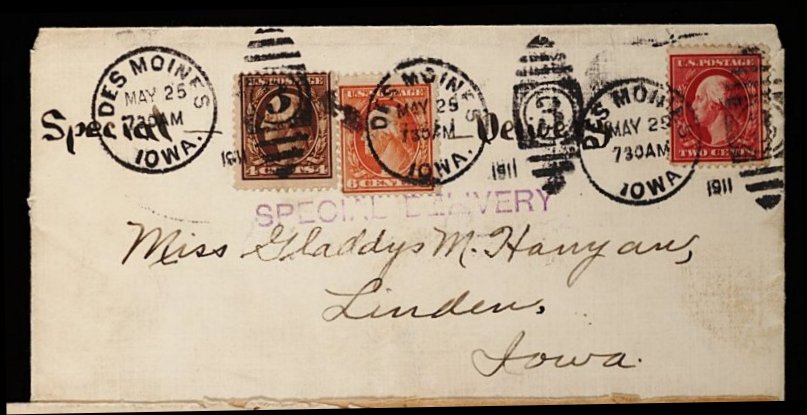 DES MOINES IOWA.
MAY 25
730AM
1911
U.S. POSTAGE
4 CENTS
U.S. POSTAGE
6 CENTS
DES MOINES IOWA.
MAY 25
730AM
1911
3
DES MOINES IOWA.
MAY 25
730AM
1911
U.S. POSTAGE
TWO CENTS
Special — Delivery
SPECIAL DELIVERY
Miss Gladdys M.
Linden,
Iowa.